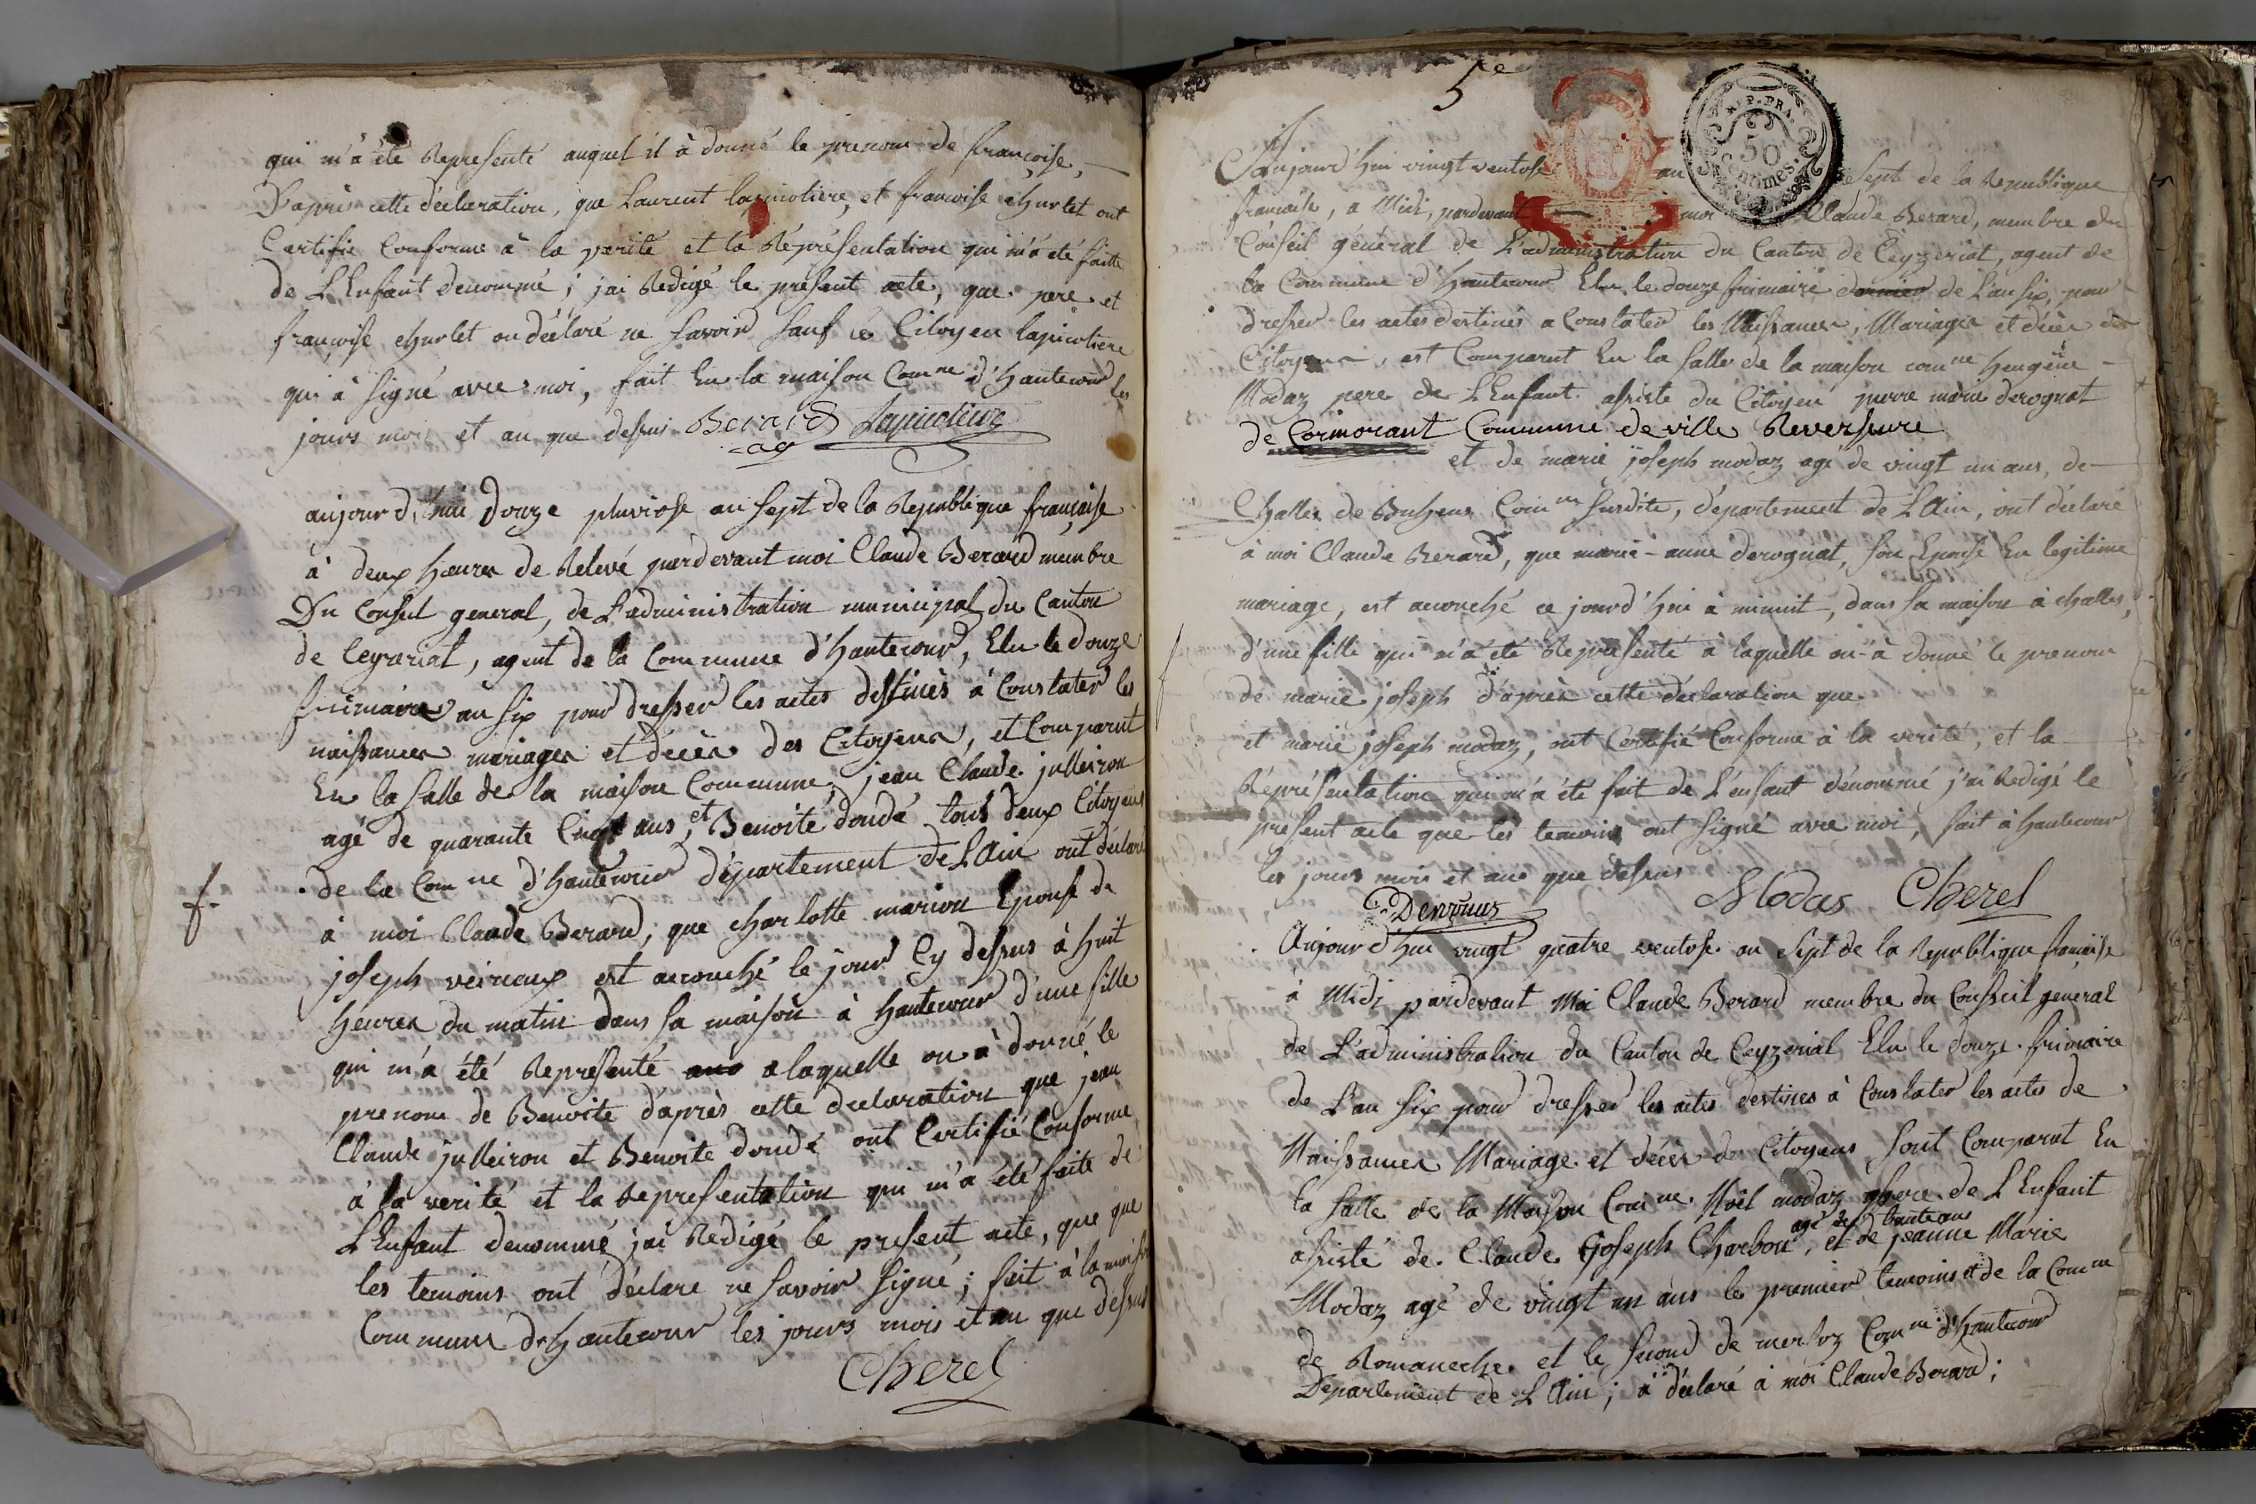 qui m'a été Representé auquel il à donné le prenom de françoise,
D'après cette déclaration, que Laurent lapicotiere, et francoise churlet ont
Certifié Conforme à la verité et la Réprésentation qui m'a été faitte
de L'Enfant denommé; j'ai Redigé le présent acte, que pere et
francoise churlet on déclaré ne savoir sauf le Citoyen lapicotiere
qui à signé avec moi, fait En la maison Comne d'hautecour les
jours mois et an que dessus Berard
ag
aujourd'hui Douze pluviose an sept de la Republique française
à deux heures de Relevé pardevant moi Claude Berard membre
Du Conseil general, de L'administration municipal du Canton
de Ceyzeriat, agent de la Commune d'hautecour, Elu le douze
frimaire an six pour dresser les actes destinés à Constater les
naissances mariages et décès des Citoyens, et Comparut
En la salle de la maison Commune, jean Claude julleiron
agé de quarante Cinq ans, et Benoite doudé tous deux Citoyens
de la Comne d'hautecour département de L'Ain ont déclaré
f.
à moi Claude Berard, que charlotte marion Epouse de
joseph veineux est acouché le jour Cy dessus à huit
heures du matin dans sa maison à hautecour d'une fille
qui m'a été Représenté a laquelle on à donné le
prenom de Benoite d'après cette declaration que jean
Claude julleiron et Benoite doudé ont Certifié Conforme
à la verité et la Representation qui m'a été faite de
L'Enfant denommé jai Redigé le present acte, que que
les temoins ont déclare ne savoir signé; fait à la maison
Commune d'hautecour les jours mois et an que dessus
Cherel
5e
REP. FRA.
50
Centimes.
Aujourd'hui vingt ventose an sept de la Republique
francaise, a Midi, pardevant moi Claude Berard, membre du
Conseil général de L'administration du Canton de Ceyzeriat, agent de
la Commune d'hautecour Elu le douze frimaire dernier de L'an six, pour
dresser les actes destinés a Constater les Naissances, Mariages et décès des
Citoyens, est Comparut En la salle de la maison comne heugene
Modaz pere de L'Enfant assisté du Citoyen pierre marie derognat
de Cormorant Commune de ville Reversure
et de marie joseph modaz agé de vingt un ans, de
Challes de Bohens Comne susdite, département de L'Ain, ont déclaré
à moi Claude Berard, que marie-anne derognat, son Epouse En legitime
mariage, est acouché ce jourd'hui à minuit, dans sa maison à challes,
d'une fille qui m'a été Représenté à laquelle on à donné le prenom
de marie joseph d'après cette déclaration que
et marie joseph modaz, ont Certifié Conforme à la verité, et la
Réprésentation qui m'a été fait de L'enfant dénommé j'ai Redigé le
present acte que les temoins ont signé avec moi, fait à hautecour
les jours mois et an que dessus
Modas Cherel
Aujourd'hui vingt quatre ventose an sept de la Republique française
à Midi pardevant Moi Claude Berard membre du Conseil general
de L'administration du Canton de Ceyzeriat Elu le douze frimaire
de L'an six pour dresser les actes destinés à Constater les actes de
Naissances Mariage et décès de Citoyens sont Comparut En
la salle de la Maison Comne. Noël modaz pere de L'Enfant
assisté de Claude Joseph Charbon, agé de trente ans et de jeanne Marie
Modaz agé de vingt un ans le premier temoins de la Comne
de Romaneche et le second de mersoz Comne d'hautecour
Département de L'Ain; à déclaré à moi Claude Berard;